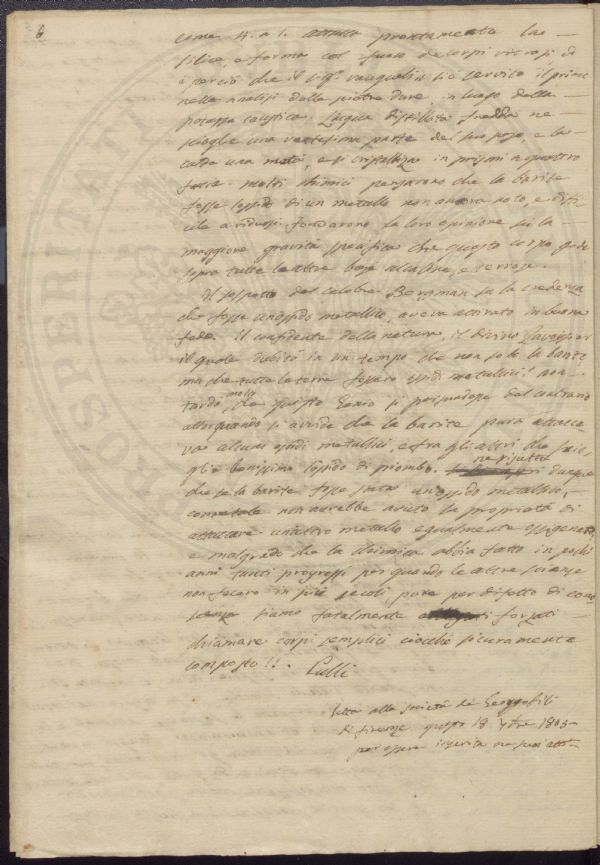 6
come 4. a 1. attacca prontamente la
silice, e forma col fuoco de corpi vitrosi, ed
è perciò che il Sig.r Vauquelin si è servito il primo
nella analisi delle pietre dure, in luogo della
potassa caustica. L'acqua distillata fredda ne
scioglie una ventesima parte del suo peso, e la
calda una metà, e si cristallizza in prismi a quattro
facie. molti chimici pensarono che la barite
fosse l'ossido di un metallo non ancora noto, e diffi-
cile a ridursi. fondarono la loro opinione su la
maggiore gravità specifica che questo corpo gode
sopra tutte le altre basi alcaline, e terrose.
Il sospetto del celebre Bergman su la credenza
che fosse un ossido metallico, aveva attirato in buona
fede il confidente della natura, il divino Lavoisier
il quale dubitò in un tempo che non solo la barite
ma che tutte le terre fossero ossidi metallici! non
tardò molto che questo Genio si persuadesse del contrario
allorquando si avvide che la barite pura attacca-
va alcuni ossidi metallici, e fra gli altri che scio-
glie benissimo l'ossido di piombo. ne risulta dunque
che se la barite fosse stata un ossido metallico,
come tale non avrebbe avuto la proprietà di
attaccare un altro metallo egualmente ossigenato,
e malgrado che la chimica abbia fatto in pochi
anni tanti progressi per quando le altre scienze
non fecero in più secoli pure per difetto di cono
scenze siamo fatalmente forzati
chiamare corpi semplici ciocchè sicuramente
composto!!. Pulli
Letta alla società de Georgofili
di firenze questo 18 7bre 1805
per essere inserita ne suoi atti